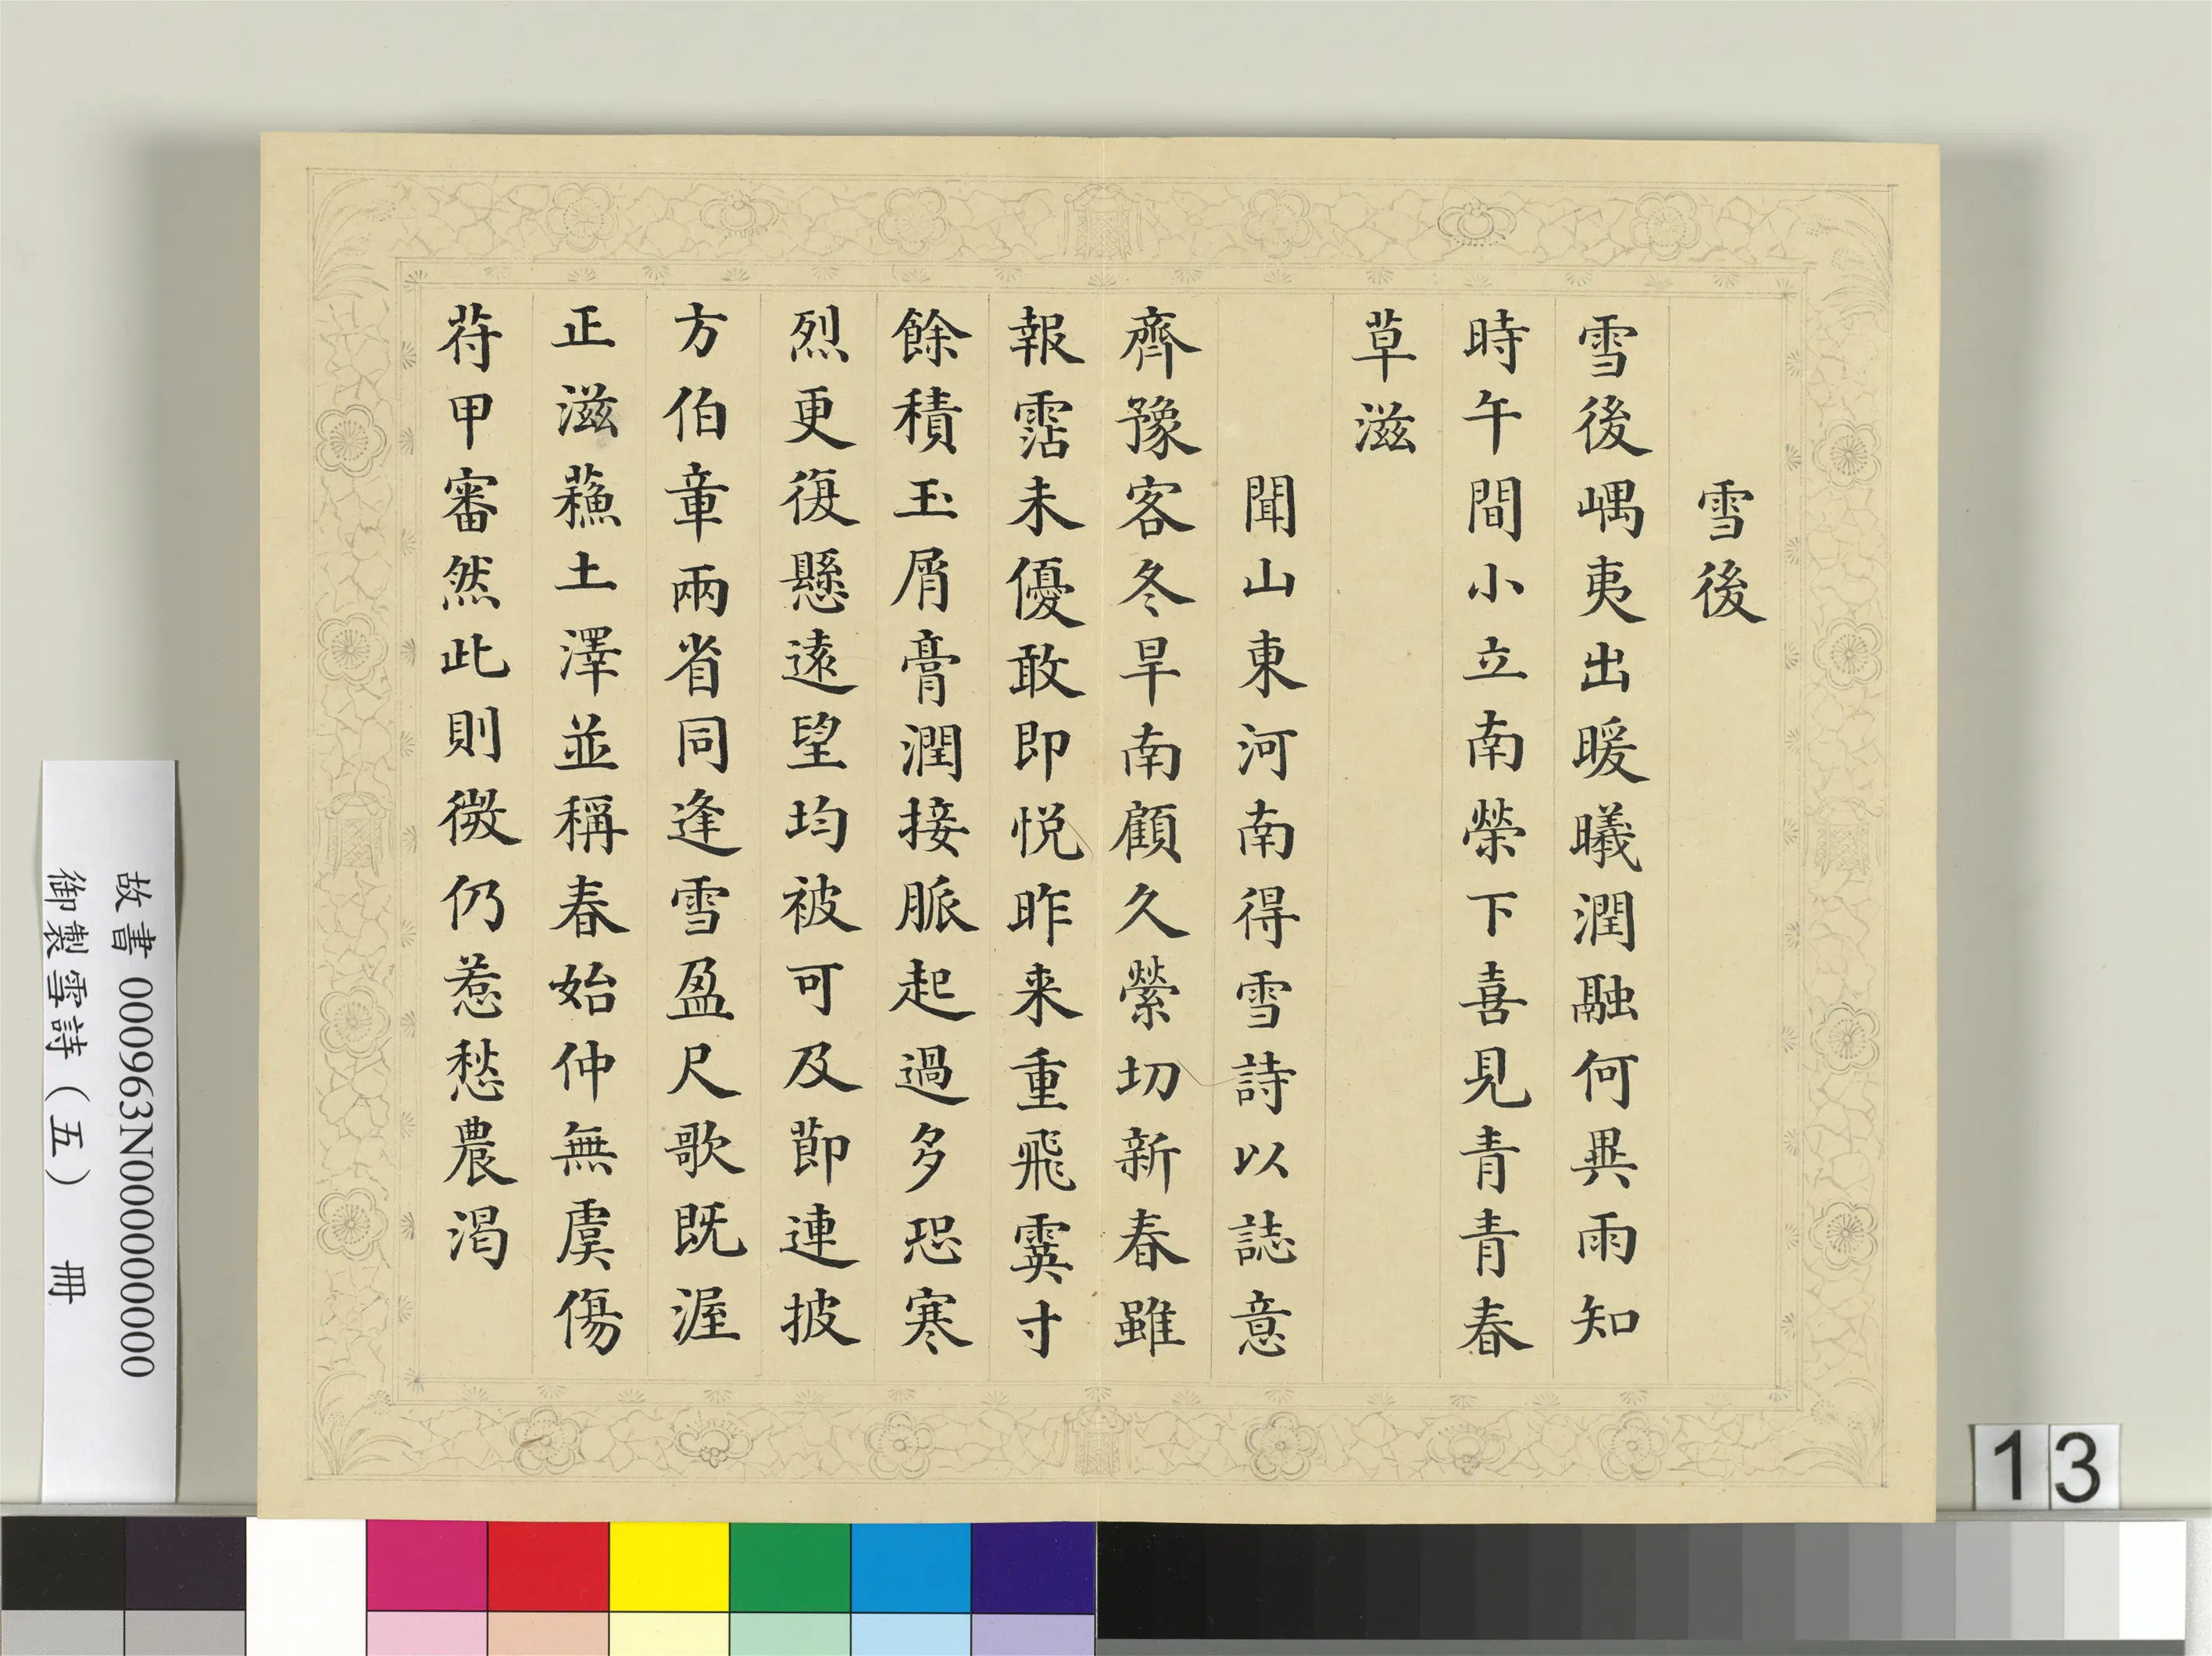 雪後
雪後嵎夷出暖曦潤融何異雨知
時午間小立南榮下喜見青青春
草滋
聞山東河南得雪詩以誌意
齊豫客冬旱南顧久縈切新春雖
報霑未優敢即悅昨来重飛霙寸
餘積玉屑膏潤接脈起過多恐寒
烈更復懸遠望均被可及節連披
方伯章兩省同逢雪盈尺歌既渥
正滋蘓土澤並稱春始仲無虞傷
莩甲審然此則微仍惹愁農渴
故書 000963N000000000
御製雪詩（五） 冊
13